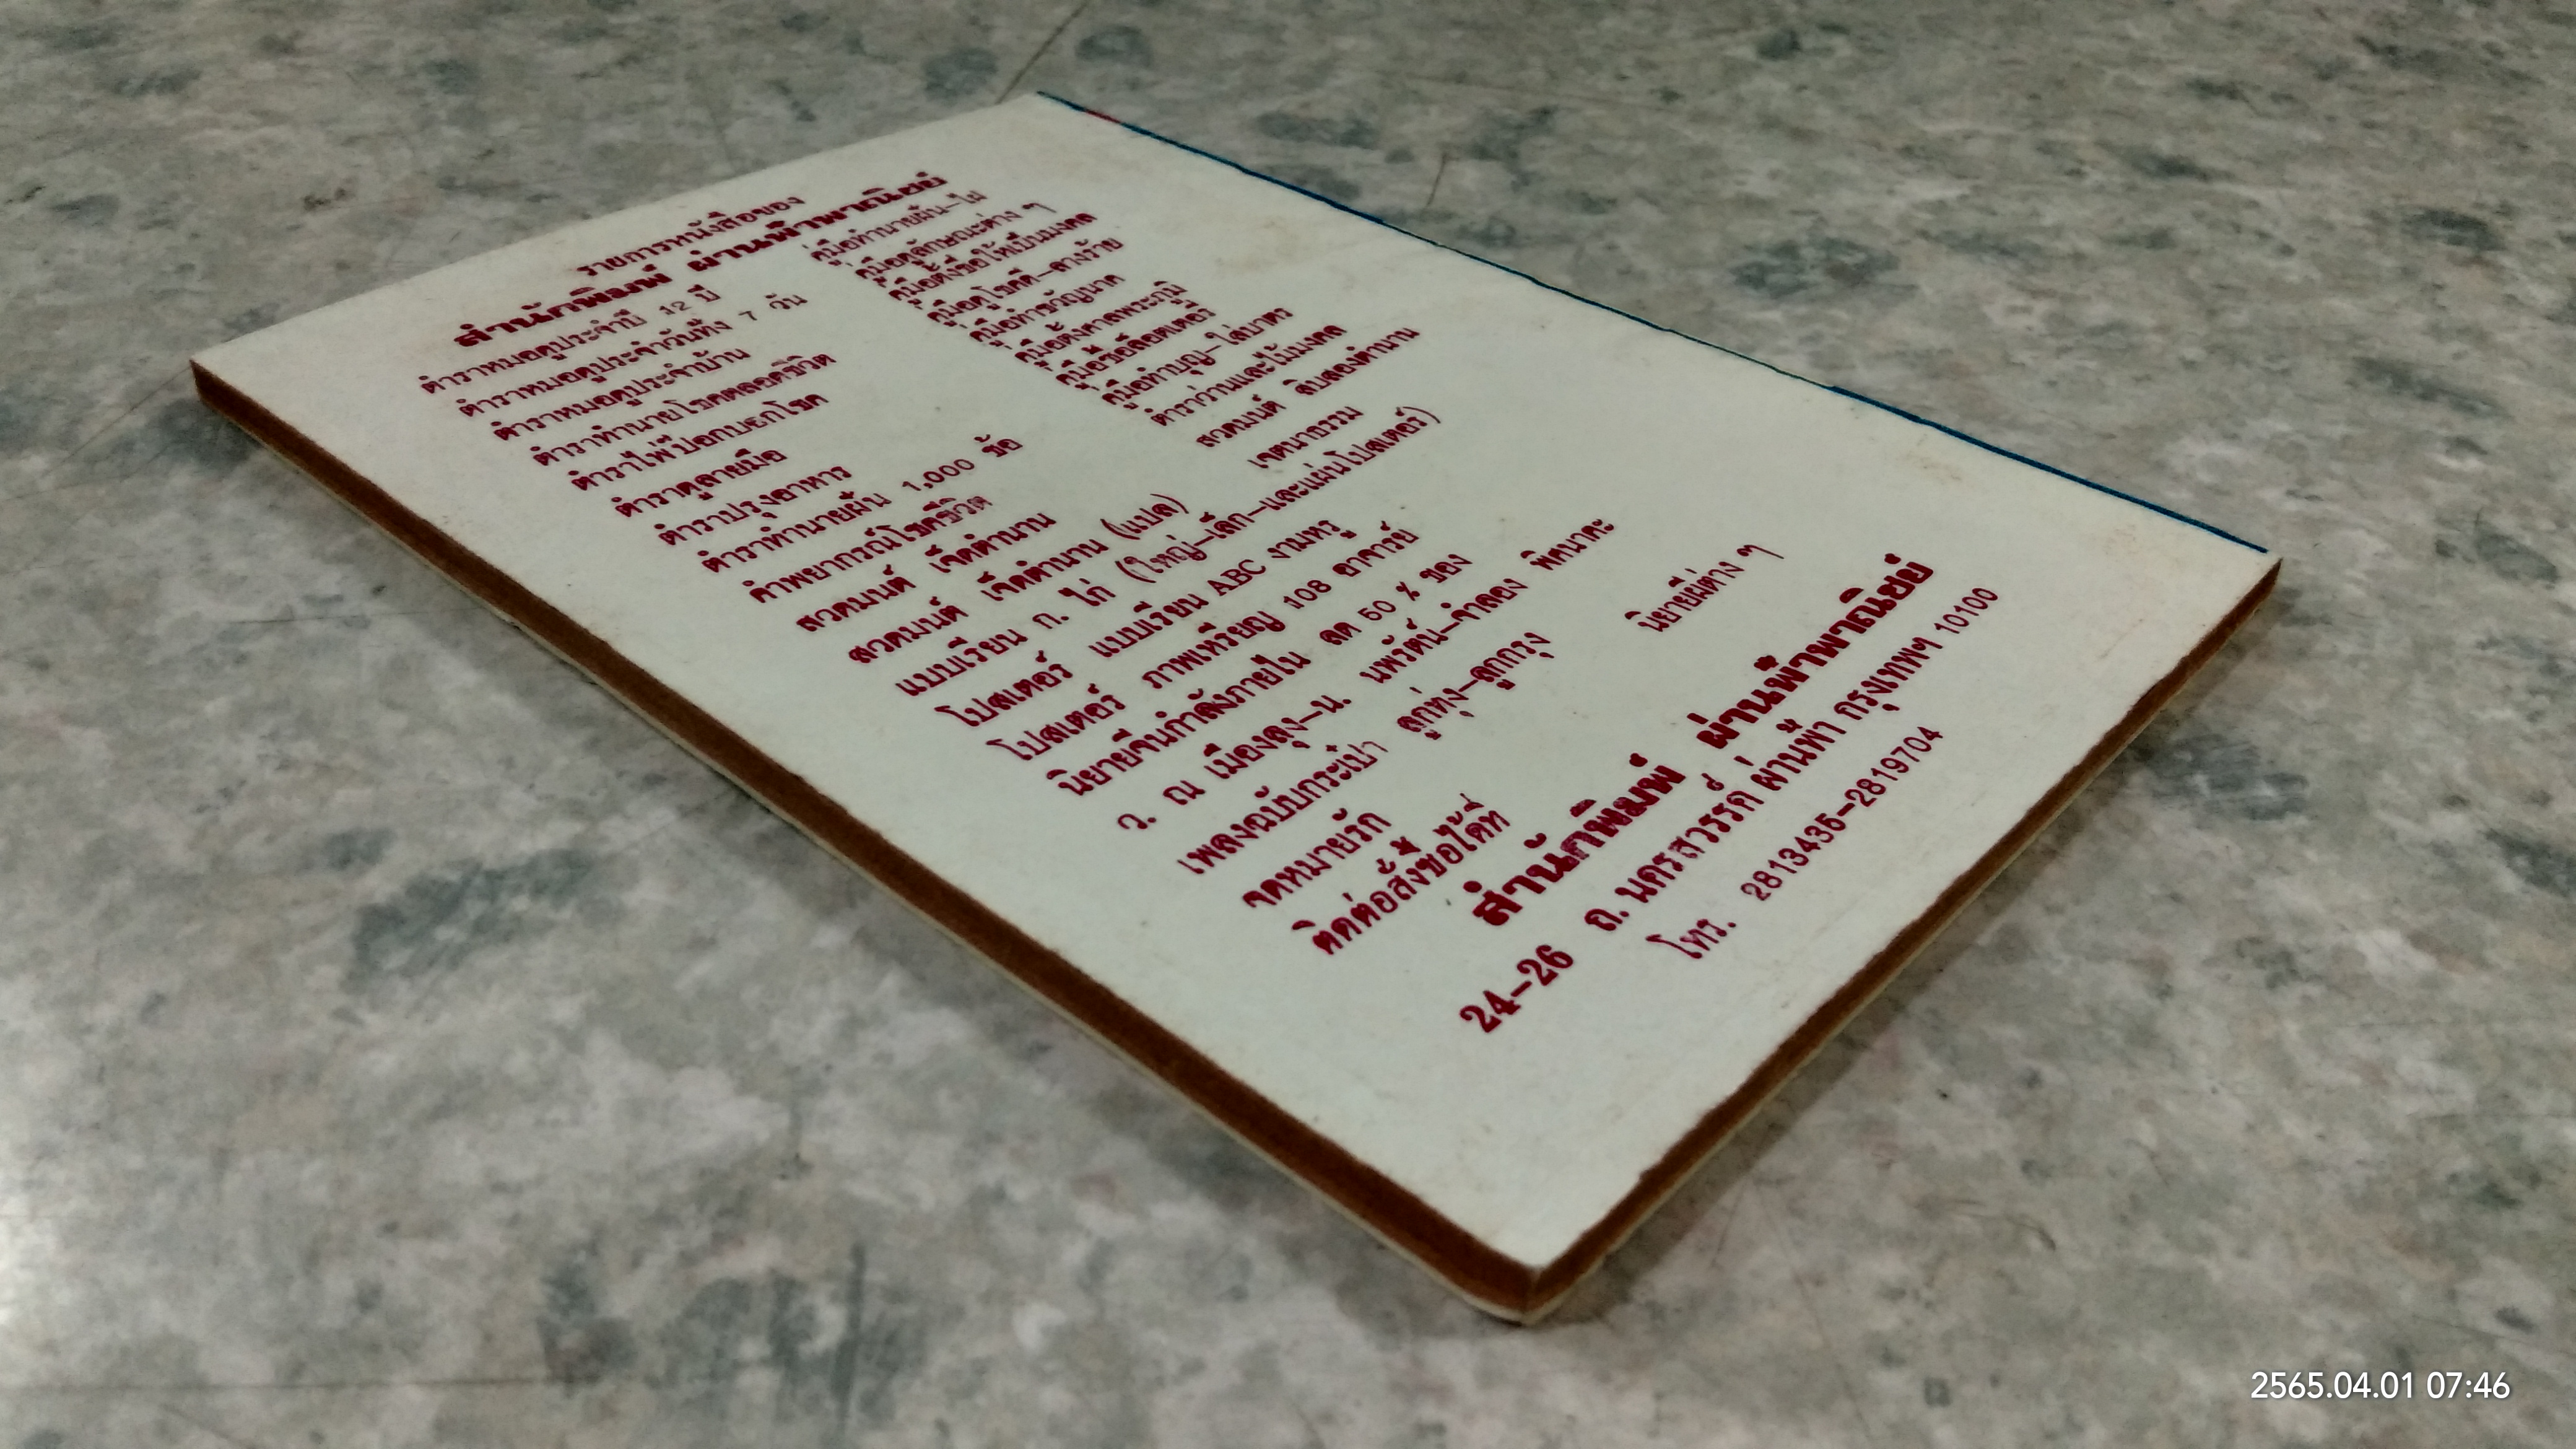 รายการหนังสือของ
สำนักพิมพ์ ผ่านฟ้าพาณิชย์
ตำราหมอดูประจำปี 12 ปี
ตำราหมอดูประจำวันทั้ง 7 วัน
ตำราหมอดูประจำบ้าน
ตำราทำนายโชคตลอดชีวิต
ตำราไพ่ป๊อกบอกโชค
ตำราดูลายมือ
ตำราปรุงอาหาร
ตำราทำนายฝัน 1,000 ข้อ
คำพยากรณ์โชคชีวิต
สวดมนต์ เจ็ดตำนาน
สวดมนต์ เจ็ดตำนาน (แปล)
คู่มือทำนายฝัน-ไฝ
คู่มือดูลักษณะต่าง ๆ
คู่มือตั้งชื่อให้เป็นมงคล
คู่มือดูโชคดี-ลางร้าย
คู่มือทำขวัญนาค
คู่มือตั้งศาลพระภูมิ
คู่มือซื้อล็อตเตอรี่
คู่มือทำบุญ-ใส่บาตร
ตำราว่านและไม้มงคล
สวดมนต์ สิบสองตำนาน
เจตนาธรรม
แบบเรียน ก. ไก่ (ใหญ่-เล็ก-และแผ่นโปสเตอร์)
โปสเตอร์ แบบเรียน ABC งามหรู
โปสเตอร์ ภาพเหรียญ 108 อาจารย์
นิยายจีนกำลังภายใน ลด 50 % ของ
ว. ณ เมืองลุง-น. นพรัตน์-จำลอง พิศนาคะ
เพลงฉบับกระเป๋า ลูกทุ่ง-ลูกกรุง
จดหมายรัก นิยายผีต่าง ๆ
ติดต่อสั่งซื้อได้ที่
สำนักพิมพ์ ผ่านฟ้าพาณิชย์
24-26 ถ. นครสวรรค์ ผ่านฟ้า กรุงเทพฯ 10100
โทร. 2813435-2819704
2565.04.01 07:46